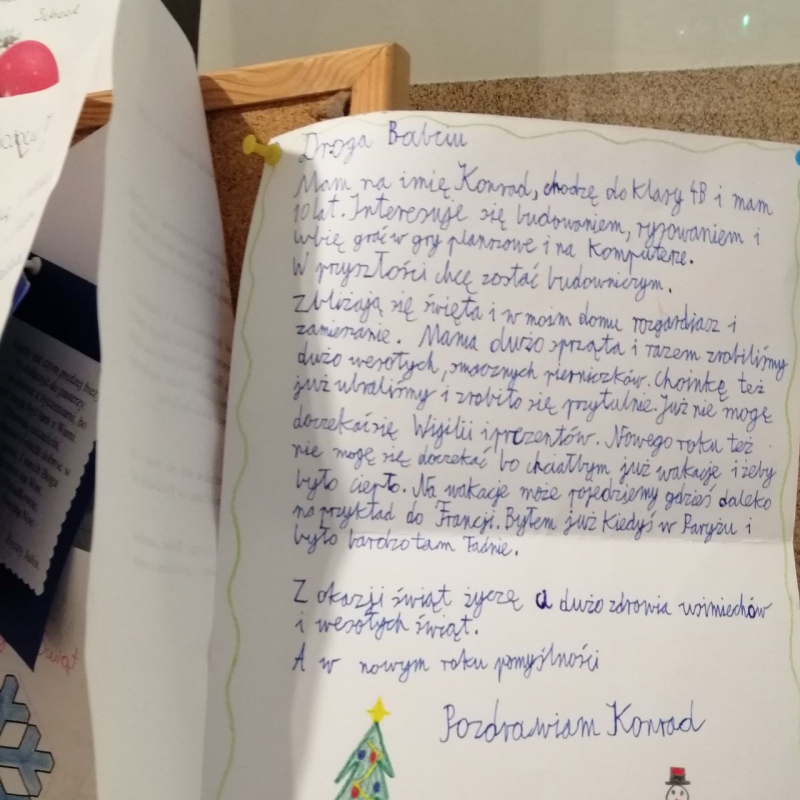 School
Droga Babciu
Mam na imię Konrad, chodzę do klasy 4B i mam
10 lat. Interesuje się budowaniem, rysowaniem i
lubię grać w gry planszowe i na komputerze.
W przyszłości chcę zostać budowniczym.
Zbliżają się święta i w moim domu rozgardiasz i
zamieszanie. Mama dużo sprząta i razem zrobiliśmy
dużo wesołych, smacznych pierniczków. Choinkę też
już ubraliśmy i zrobiło się przytulnie. Już nie mogę
doczekać się Wigilii i prezentów. Nowego roku też
nie mogę się doczekać bo chciałbym już wakacje i żeby
było ciepło. Na wakacje może pojedziemy gdzieś daleko
na przykład do Francji. Byłem już kiedyś w Paryżu i
było bardzo tam ładnie.
Z okazji świąt życzę dużo zdrowia uśmiechów
i wesołych świąt.
A w nowym roku pomyślności
Pozdrawiam Konrad